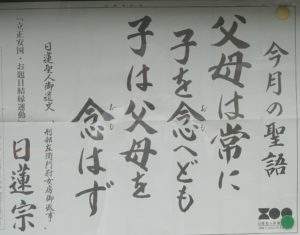 今月の聖語
父母は常に
子を念へども
子は父母を
念はず
日蓮聖人御遺文、刑部左衛門尉女房御返事
「立正安国・お題目結縁運動」
日蓮宗